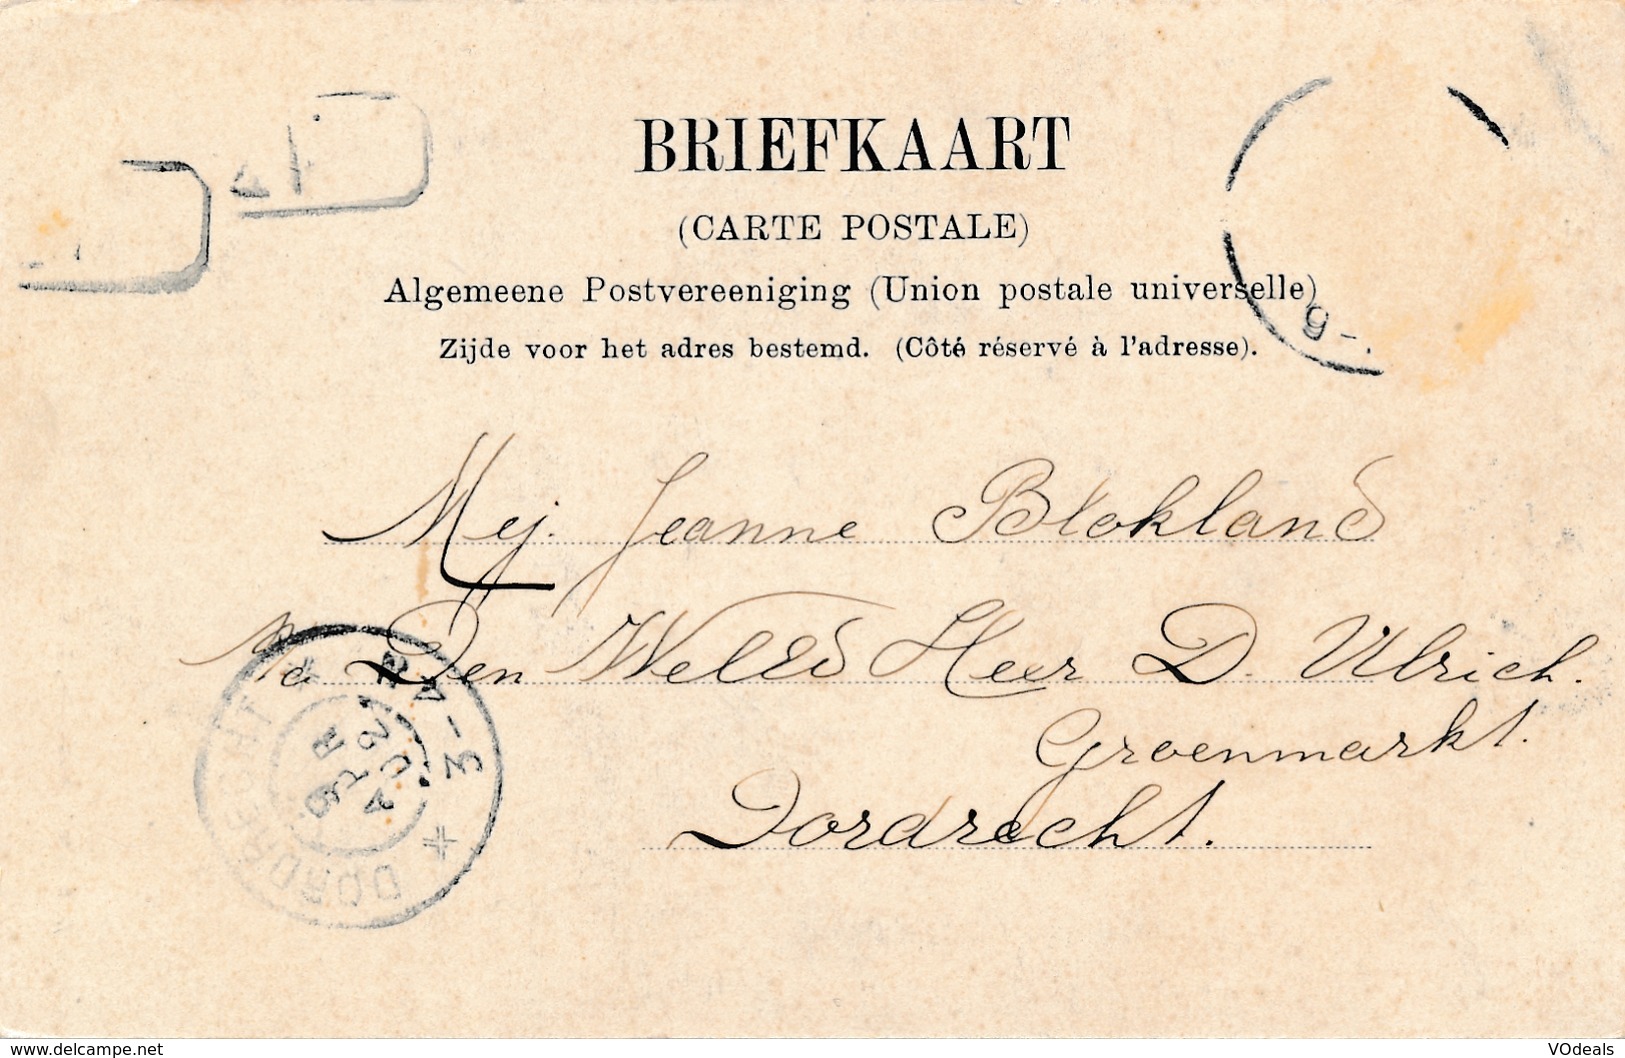 BRIEFKAART
(CARTE POSTALE)
Algemeene Postvereeniging (Union postale universelle)
Zijde voor het adres bestemd. (Côté réservé à l'adresse).
9-
Mej. Jeanne Blokland
Den WelEd Heer D. Ulrich.
Groenmarkt.
Dordrecht.
DORDRECHT
3-4
www.delcampe.net
VOdeals